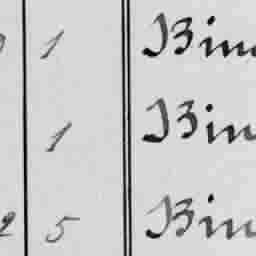 1 Bin
1 Bin
2 5 Bin